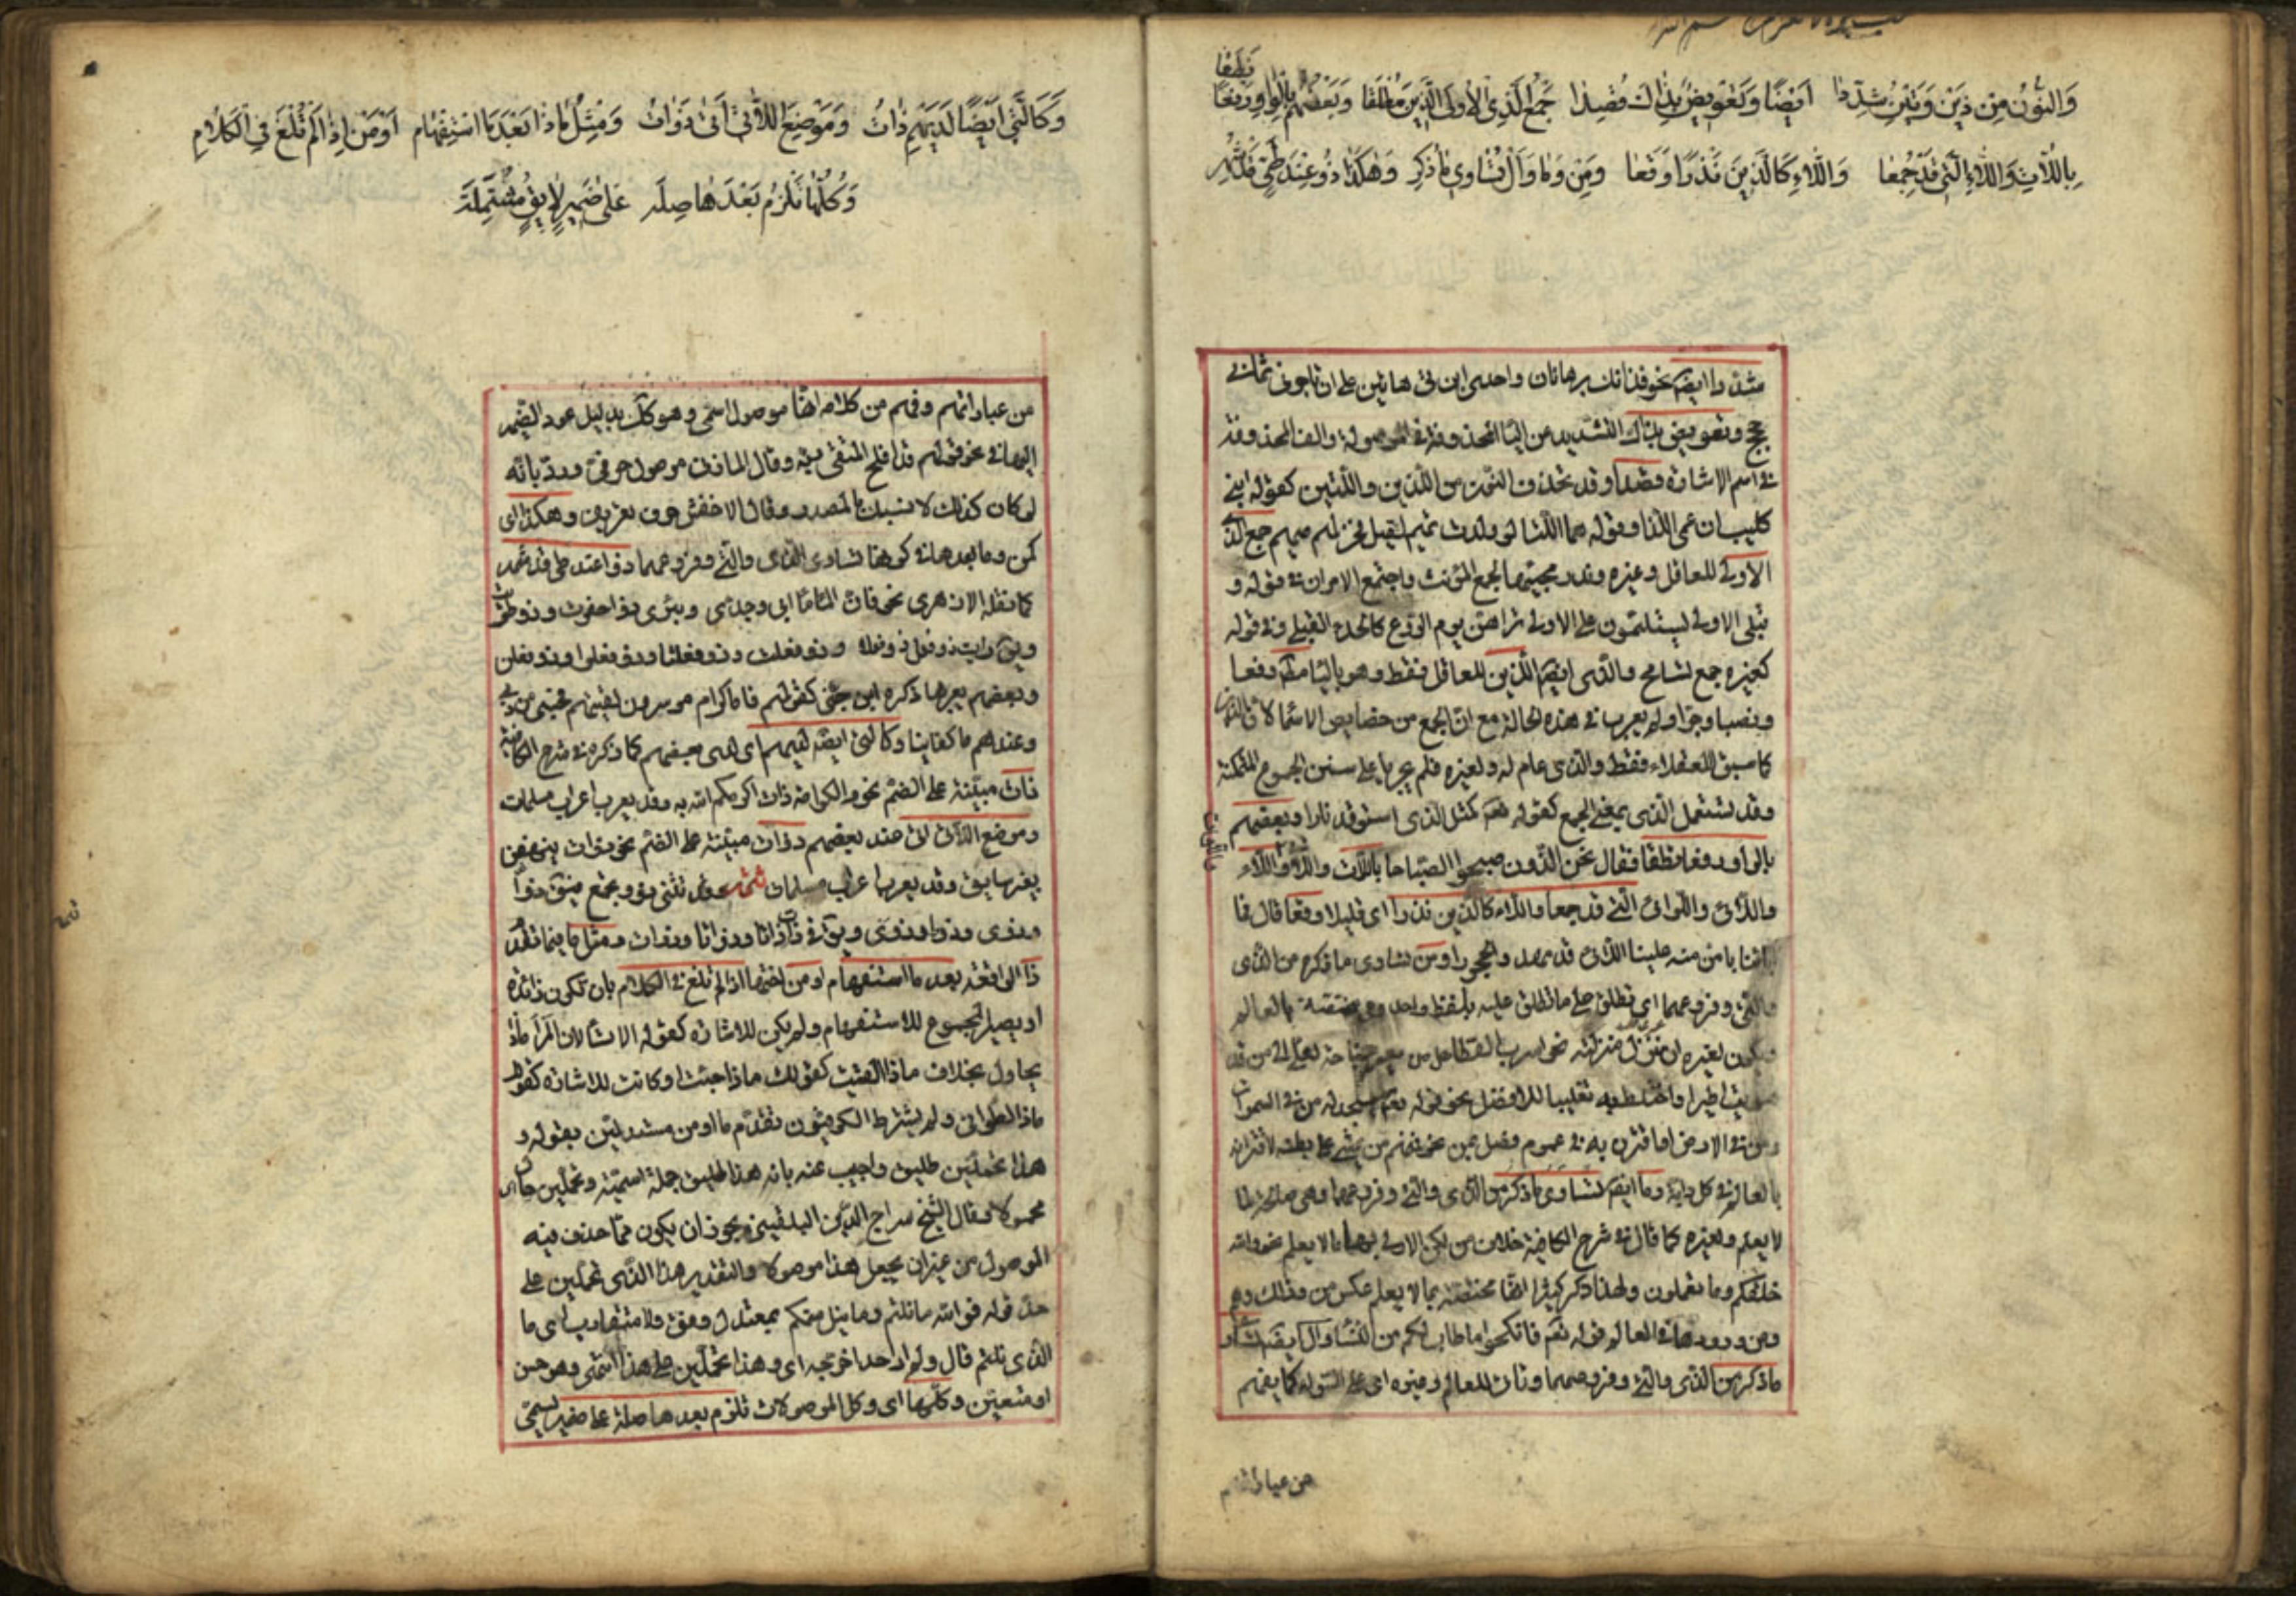 وَالنُّونُ مِنْ ذَيْنِ وَتَيْنِ شُدِّدَا اَيْضًا وَتَعْوِيضٌ بِذَاكَ قُصِدَا جَمْعُ الَّذِي الْأُولَى الَّذِينَ مُطْلَقَا وَبَعْضُهُمْ بِالْوَاوِ رَفْعًا نَطَقَا
بِاللَّاتِ وَاللَّاءِ الَّتِي قَدْ جُمِعَا وَاللَّاءِ كَالَّذِينَ نَزْرًا وَقَعَا وَمَنْ وَمَا وَأَلْ تُسَاوِي مَا ذُكِرَ وَهَكَذَا ذُو عِنْدَ طَيِّئٍ شُهِرْ
مشددا ايضا نحو فذانك برهانان واحدى ابنتى هاتين على ان تاجرنى ثمانى
حجج وتعويض بذاك التشديد عن اليا المحذوفة فى الموصول والف المحذوفة
فى اسم الاشارة قصدا وقد تحذف النون من اللذين واللتين كقوله ابنى
كليب ان عمى اللذا وقوله هما اللتا لو ولدت تميم لقيل فخر لهم صميم جمع الذى
الاولى للعاقل وغيره وندر مجيئها لجمع المؤنث واجتمع الامران فى قوله و
تبلى الاولى يستلئمون على الاولى تراهن يوم الروع كالحدأ القبل وفى قوله
والذى ايضا الذين للعاقل فقط وهو باليا مطلقا رفعا
ونصبا وجرا ولم يعرب فى هذه الحالة مع ان الجمع من خصايص الاسما لان الذين
كما سبق للعقلاء فقط والذى عام له ولغيره فلم يجريا على سنن الجموع المتمكنة
وقد يستعمل الذى بمعنى الجمع كقوله تعم كمثل الذى استوقد نارا وبعضهم
بالواو رفعا نطقا فقال نحن الذون صبحوا الصباحا باللات واللاء
واللائى واللواتى التى قد جمعا واللاء كالذين نزرا اى قليلا وقعا قال فما
اباؤنا بامن منه علينا اللاء قد مهدوا الحجورا ومن تساوى ما ذكر من الذى
والتى وفروعهما اى تطلق على ما تطلق عليه بلفظ واحد وهى مختصة بالعالم
وتكون لغيره ان نزل منزلته نحو اسرب القطا هل من يعير جناحه لعلى الى من قد
هويت اطير او اختلط به تغليبا للافضل نحو قوله تعم يسجد له من فى السموات
ومن فى الارض او اقترن به فى عموم فصل بمن نحو فمنهم من يمشى على بطنه لاقترانه
بالعالم فى كل دابة وما ايضا تساوى ما ذكر من الذى والتى وفروعهما وهى صالحة لما
لا يعلم ولغيره كما قال فى شرح الكافية خلافا لمن لكن الاولى بها ما لا يعلم نحو والله
خلقكم وما تعملون ولهذا ذكر كثير انها مختصة بما لا يعلم عكس من وذلك وهم
ومن ورودها فى العالم قوله تعم فانكحوا ما طاب لكم من النساء وال ايضا تساوى
ما ذكر من الذى والتى وفروعهما وتات للعالم وغيره اى على السواء كما يفهم
من عباراتهم
وَكَالَّتِي اَيْضًا لَدَيْهِمْ ذَاتُ وَمَوْضِعَ اللَّاتِي اَتَى ذَوَاتُ وَمِثْلُ مَا ذَا بَعْدَ مَا اسْتِفْهَامِ اَوْ مَنْ اِذَا لَمْ تُلْغَ فِي الْكَلَامِ
وَكُلُّهَا تَلْزَمُ بَعْدَهَا صِلَه عَلَى ضَمِيرٍ لَايِقٍ مُشْتَمِلَه
من عباراتهم وفهم من كلامه انها موصول اسمى وهو كذلك بدليل عود الضمير
اليها فى نحو قولهم قد افلح المتقى ربه وقال المازنى موصول حرفى ورد بانه
لو كان كذلك لانسبك بالمصدر وقال الاخفش حرف تعريف وهكذا اى
كمن وما بعدها فى كونها تساوى الذى والتى وفروعهما ذو عند طى قد شهر
كما نقله الازهرى نحو فان الماء ماء ابى وجدى وبئرى ذو حفرت وذو طويت
ويق رايت ذو فعل ذو فعلا وذو فعلت وذو فعلتا وذو فعلوا وذو فعلن
وبعضهم يعربها ذكره ابن جنى كقولهم فاما كرام موسرون لقيتهم فحسبى من ذى
عندهم ما كفانيا وكالتى ايضا لديهم اى لدى بعضهم كما ذكره فى شرح الكافية
ذات مبنية على الضم نحو والكرامة ذات اكرمكم الله به وقد يعرب اعراب مسلمات
وموضع اللاتى اتى عند بعضهم ذوات مبنية على الضم نحو ذوات ينهضن
بغير سايق وقد يعرب اعراب مسلمات تتمة قد تثنى ذو وتجمع فيق ذوا
وذوى وذووا وذوى ويق فى ذات ذاتا وذواتا وذوات ومثل ما فيما تقدم
ذا الواقعة بعد ما استفهام او من اختها اذا لم تلغ فى الكلام بان تكون زائدة
او يصير المجموع للاستفهام ولم يكن للاشارة كقوله الا تسألان المرأ ماذا
يحاول بخلاف ماذا القيت كقولك ماذا جئت او كانت للاشارة كقولهم
ماذا التوانى ولم يشترط الكوفيون تقدم ما او من مستدلين بقوله و
هذا تحملين طليق واجيب عنه بانه هذا طليق جملة اسمية وتحملين حال اى
محمولا وقال الشيخ سراج الدين البلقينى يجوز ان يكون مما حذف فيه
الموصول من غير ان يجعل هذا موصولا والتقدير هذا الذى تحملين على
حد قوله فوالله ما نلتم وما نيل منكم بمعتدل وفق ولا متقارب اى ما
الذى نلتم قال ولم ار احدا خرجه اى وهذا تحملين على هذا انتهى وهو حسن
او متعين وكلها اى وكل الموصولات تلزم بعدها صلة على ضمير يسمى